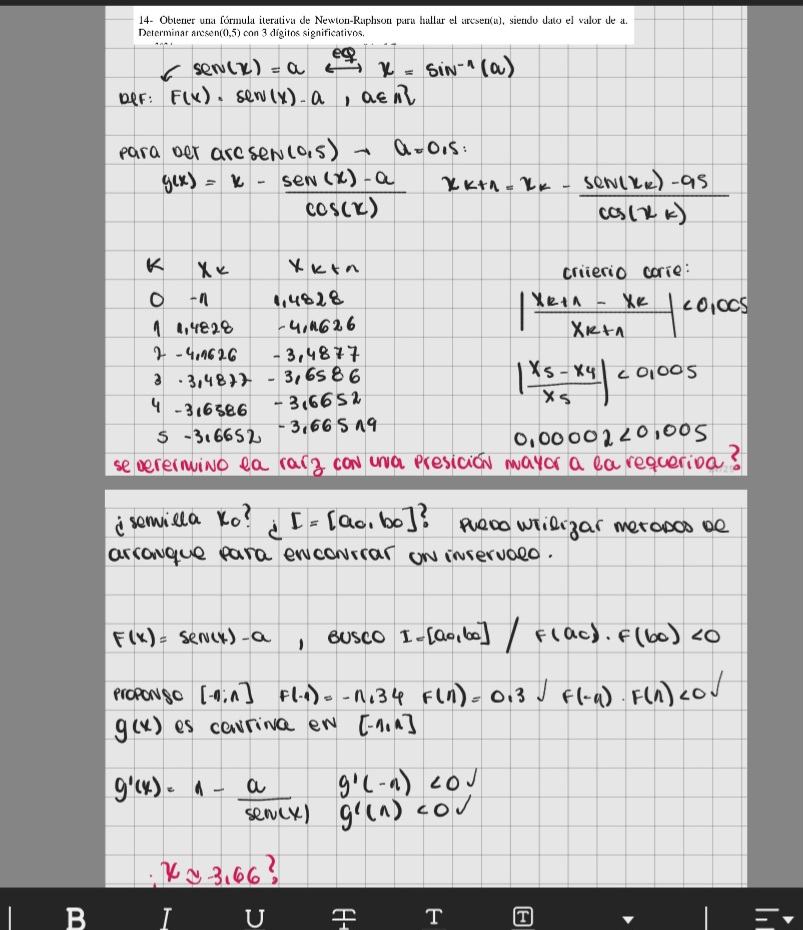 14- Obtener una fórmula iterativa de Newton-Raphson para hallar el arcsen(a), siendo dato el valor de a.
Determinar arcsen(0,5) con 3 dígitos significativos.
sen(x) = a <-eq-> x = sin⁻¹(a)
Def: F(x) = sen(x) - a , a ∈ R
para det arcsen(0,5) → a=0,5:
g(x) = x - (sen(x) - a)/cos(x) xk+1 = xk - (sen(xk) - 0,5)/cos(xk)
K Xk Xk+1 criterio corte:
0 -1 1,4828 |(Xk+1 - Xk)/Xk+1| <0,005
1 1,4828 -4,1626
2 -4,1626 -3,4877
3 -3,4877 -3,6586 |(X5 - X4)/X5| <0,005
4 -3,6586 -3,6652
5 -3,6652 -3,66519 0,00002<0,005
se determino la raíz con una presición mayor a la requerida?
¿semilla x0? ¿ I = [a0, b0]? Puedo utilizar metodos de
arranque para encontrar un intervalo.
F(x) = sen(x) - a , Busco I = [a0, b0] / F(a0) . F(b0) <0
Propongo [-1;1] F(-1) = -1,34 F(1) = 0,3 ✓ F(-1) . F(1) <0 ✓
g(x) es continua en [-1,1]
g'(x) = 1 - a/sen(x) g'(-1) <0 ✓
g'(1) <0 ✓
¿x ≈ 3,66?
B I U T T T